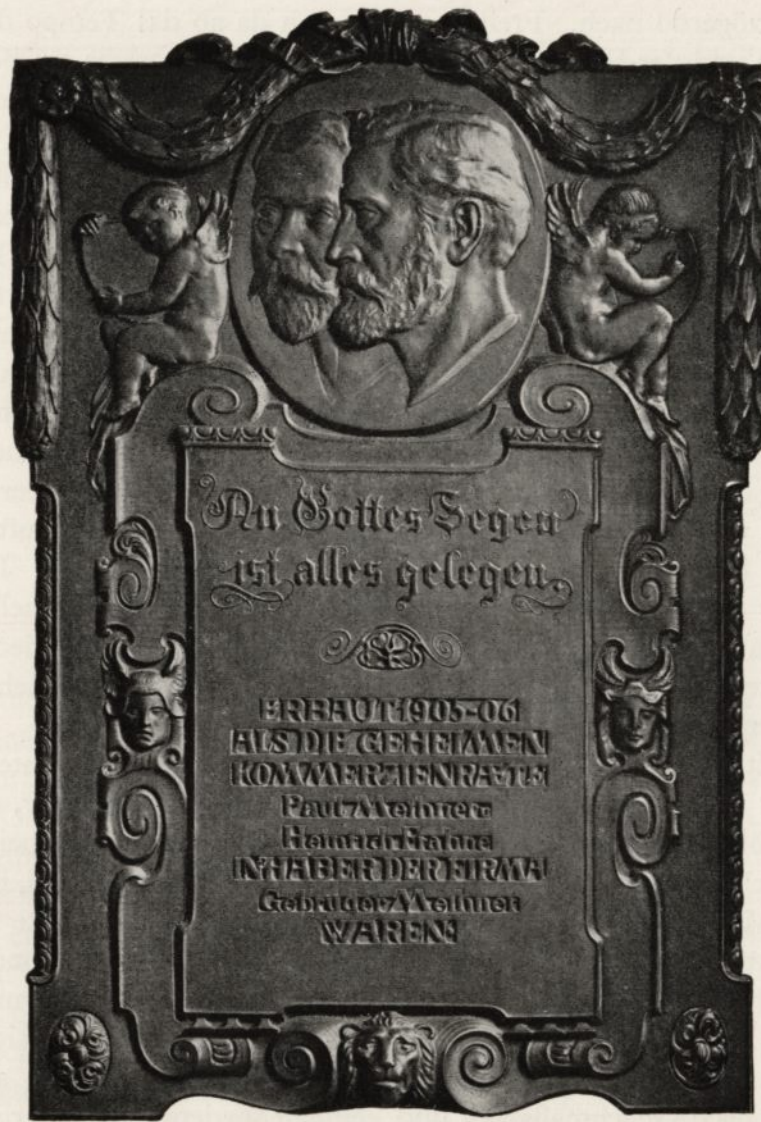 An Gottes Segen
ist alles gelegen.
ERBAUT 1905-06
ALS DIE GEHEIMEN
KOMMERZIENRÆTE
Paul Methner
Heinrich Frahne
INHABER DER FIRMA
Gebrüder Methner
WAREN